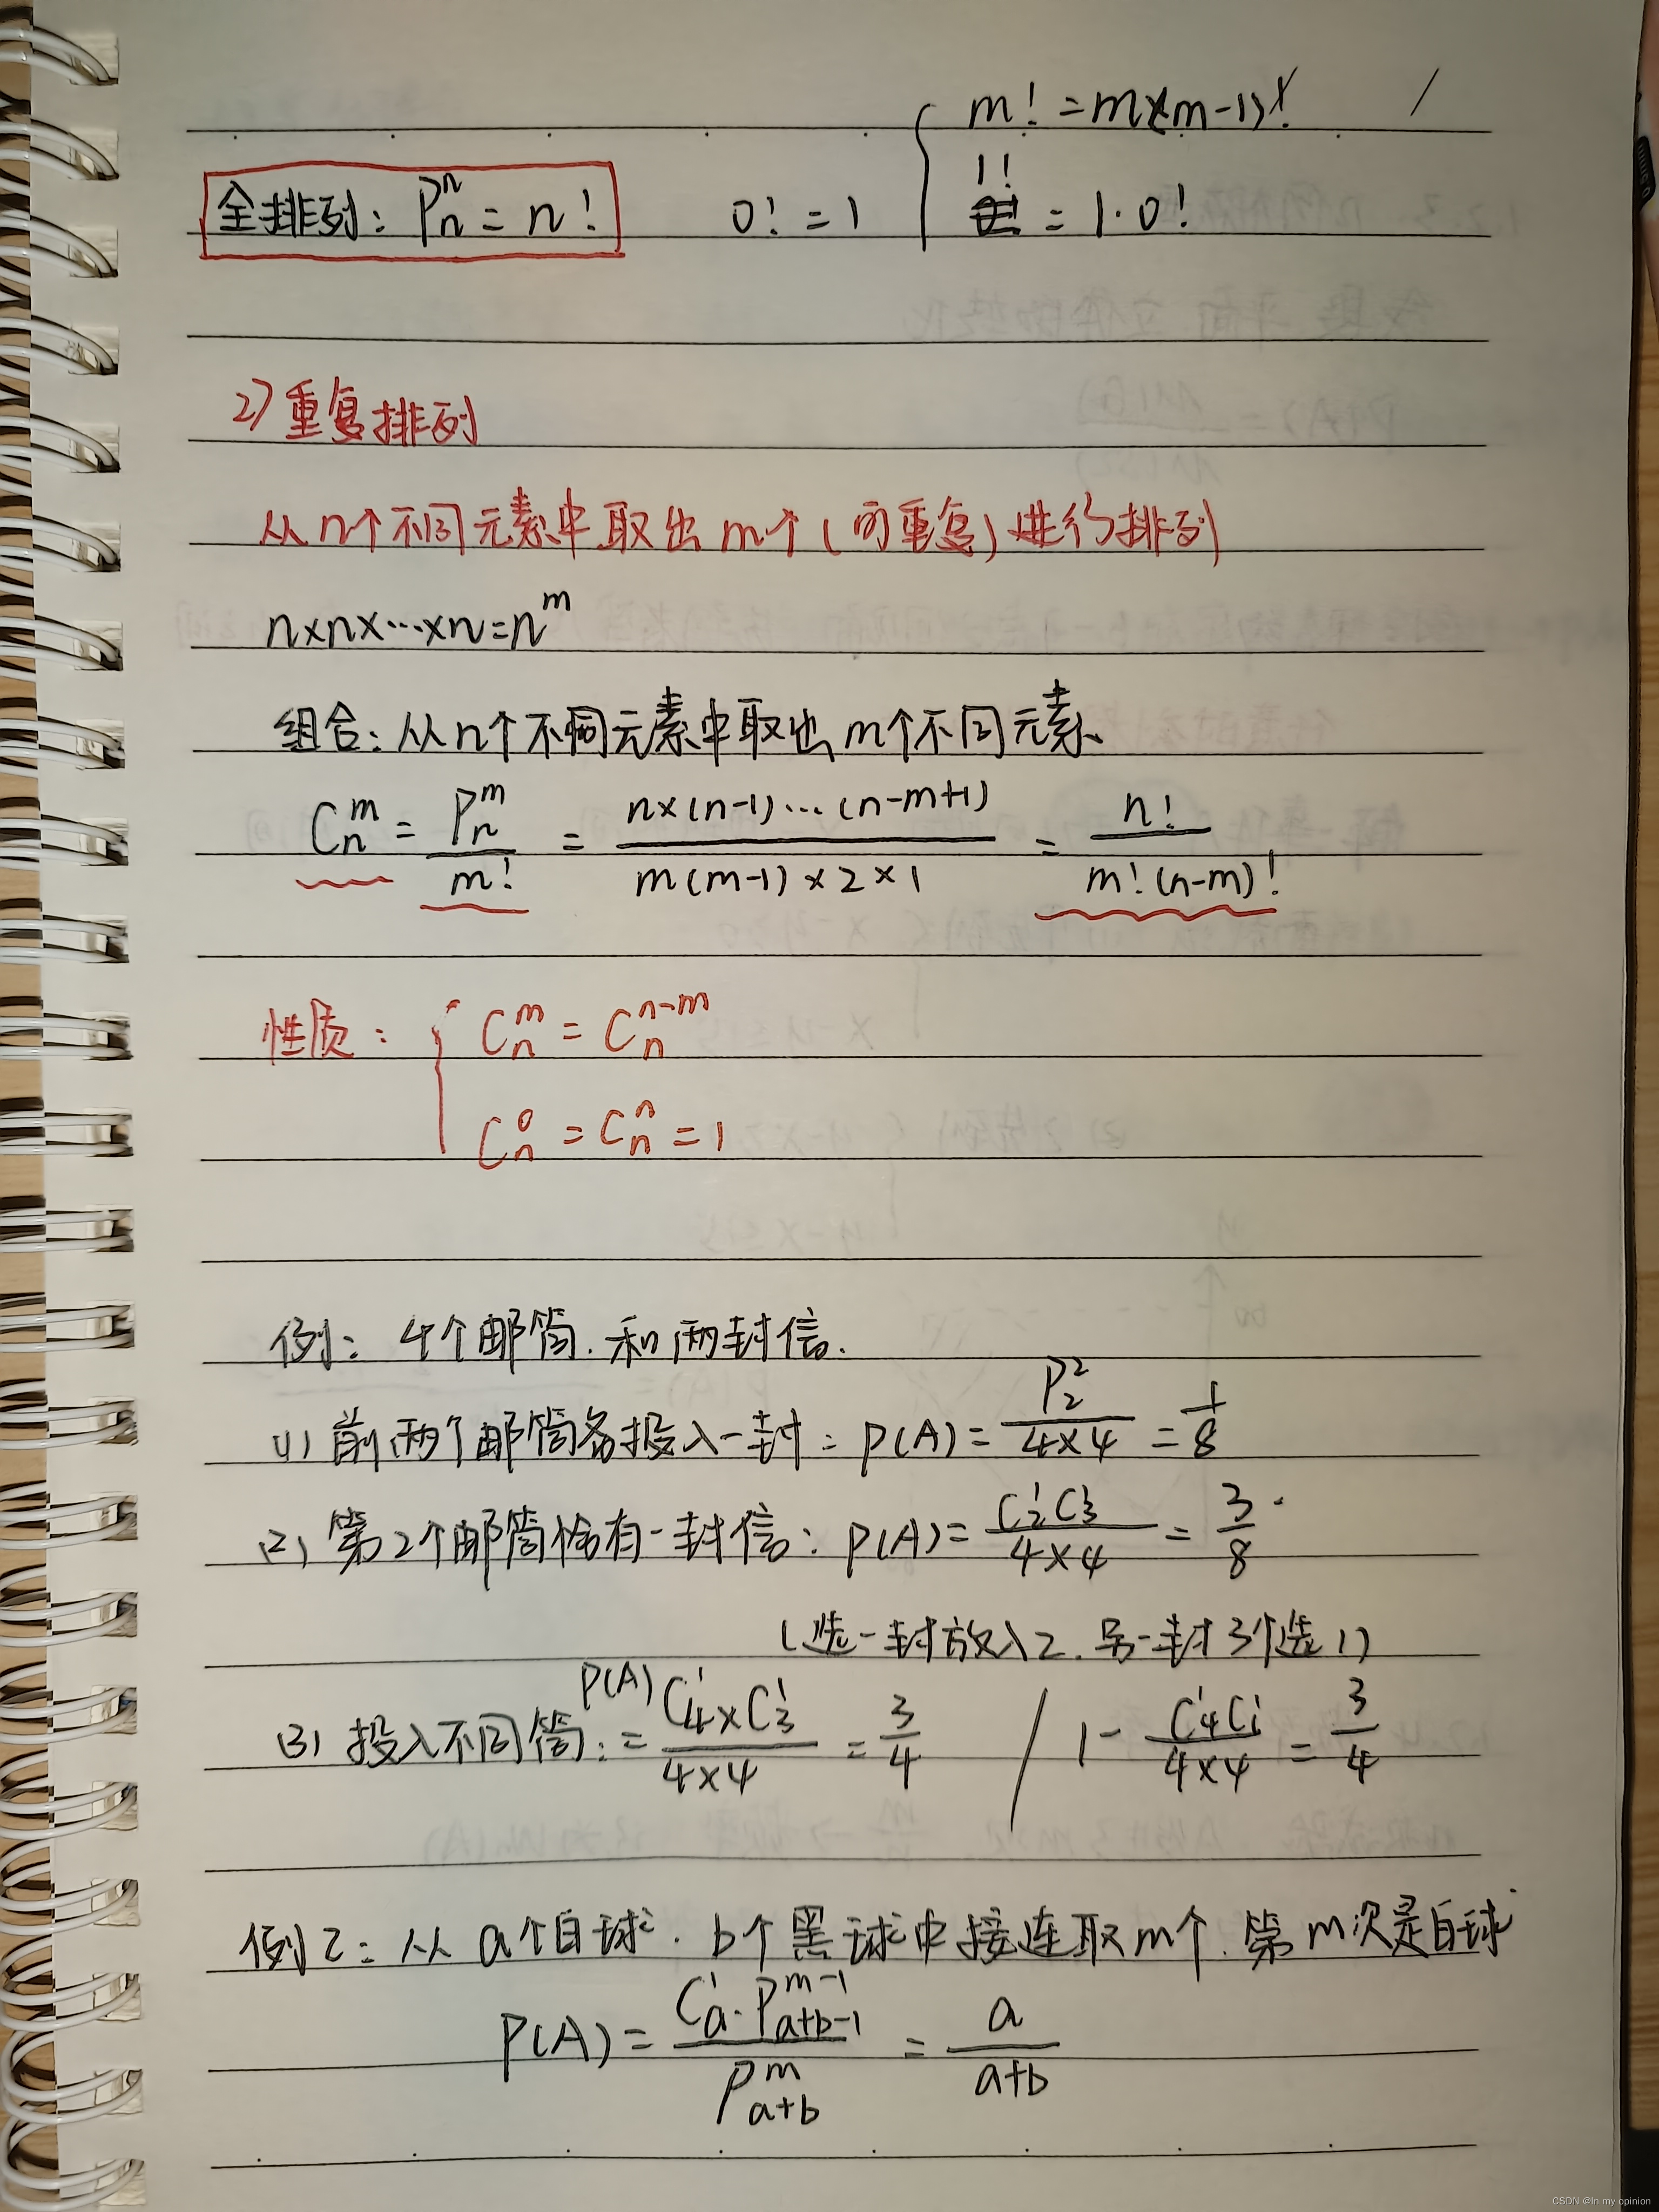 m! = m×(m-1)!
全排列: Pₙⁿ = n!  0! = 1  1! = 1·0!
2) 重复排列
从n个不同元素中取出m个(可重复)进行排列
n×n×…×n=nᵐ
组合: 从n个不同元素中取出m个不同元素.
Cₙᵐ = Pₙᵐ / m! = n×(n-1)…(n-m+1) / m(m-1)×2×1 = n! / m!(n-m)!
性质: { Cₙᵐ = Cₙⁿ⁻ᵐ
Cₙ⁰ = Cₙⁿ = 1
例: 4个邮筒.和两封信.
(1) 前两个邮筒各投入一封: P(A) = P₂² / 4×4 = 1/8
(2) 第2个邮筒恰有一封信: P(A) = C₂¹C₃¹ / 4×4 = 3/8.
(选一封放入2.另一封3个选1)
(3) 投入不同筒: P(A) = C₄¹×C₃¹ / 4×4 = 3/4 / 1 - C₄¹C₁¹ / 4×4 = 3/4
例2: 从a个白球.b个黑球中接连取m个.第m次是白球
P(A) = Cₐ¹·Pₐ₊b₋₁ᵐ⁻¹ / Pₐ₊bᵐ = a / a+b
CSDN @In my opinion